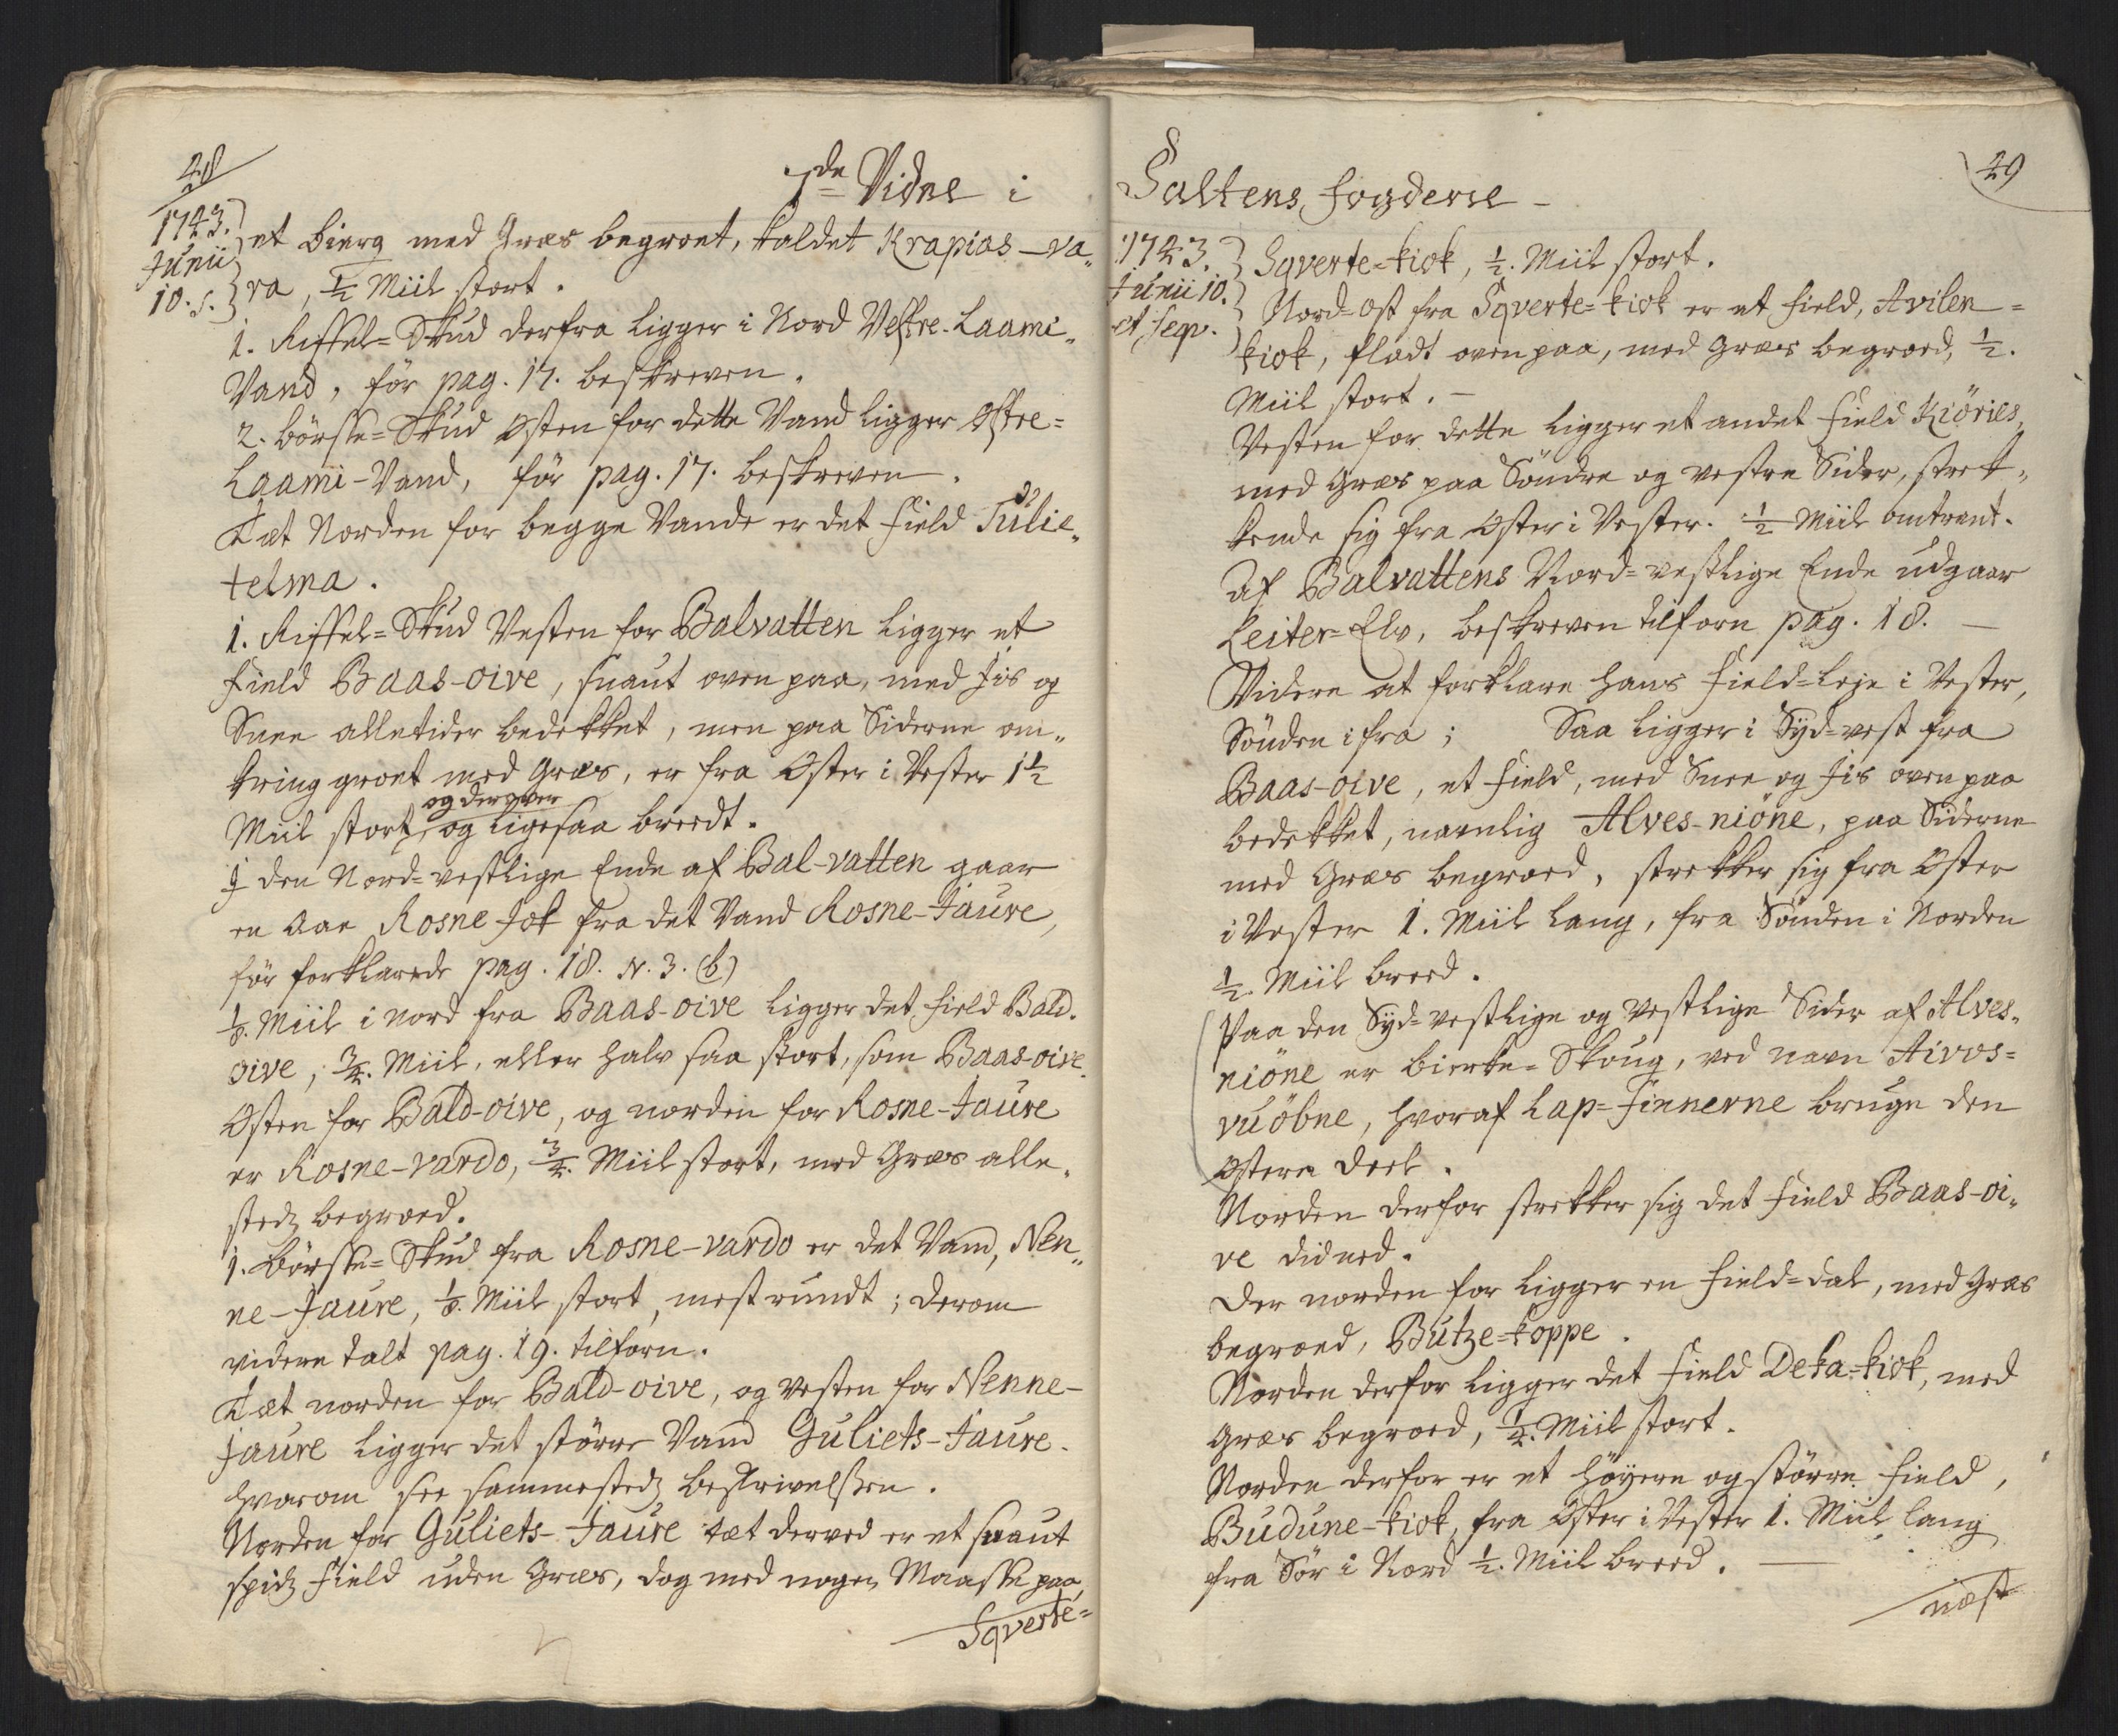 28
7de Vidne i
1743.
Junii
10. s.
et bierg med Græs begroet, kaldet Krapias-va-
ra, ½ Miil stort.
1. Riffel-Skud derfra ligger i Nord Vestre-Laami-
Vand, för pag. 17. beskreven.
2. börsse-Skud Østen for dette Vand ligger Østre-
Laami-Vand, för pag. 17. beskreven.
Tæt Norden for begge Vande er det Field Sulie-
telma.
1. Riffel-Skud Vesten for Balvatten ligger et
Field Baas-oive, snaut oven paa, med Jis og
Snee alletider bedekket, men paa Siderne om-
kring groet med Græs, er fra Øster i Vester 1½
Miil stort, og derover og ligesaa breedt.
J den Nord-vestlige Ende af Bal-vatten gaar
en Aae Rosne Jok fra det Vand Rosne-Jaure,
för forklarede pag. 18. N. 3. (b)
⅛. Miil i Nord fra Baas-oive ligger det Field Bald-
oive, ¾. Miil, eller halv saa stort, som Baas-oive.
Østen for Bald-oive, og norden for Rosne-Jaure
er Rosne-vardo, ¾. Miil stort, med Græs alle-
stedz begroed.
1. Börsse-Skud fra Rosne-vardo er det Vand, Nen-
ne-Jaure, ⅛. Miil stort, mest rundt; derom
videre talt pag. 19. tilforn.
Tæt norden for Bald-oive, og vesten for Nenne-
jaure ligger det större Vand Guliets-Jaure.
hvorom see sammestedz beskrivelssen.
Norden for Guliets-Jaure tæt derved er et snaut
spidz Field uden Græs, dog med nogen Maasse paa,
Sqverte-
29
Saltens Fogderie
1743.
Junii 10.
et seqv.
Sqverte-kiok, ½. Miil stort.
Nord-ost fra Sqverte-kiok er et Field, Avilen-
kiok, fladt oven paa, med Græs begroed, ½.
Miil stort.
Vesten for dette ligger et andet Field Kiöries,
med Græs paa Söndre og vestre Sider, strek-
kende sig fra Øster i Vester. ½ Miil omtrent.
Af Balvattens Nord-vestlige Ende udgaar
Leiter-Elv, beskreven tilforn pag. 18.
Videre at forklare hans Field-leje i Vester,
Sönden ifra; Saa ligger i Syd-vest fra
Baas-oive, et Field, med Snee og Jis oven paa
bedekket, navnlig Alves-nione, paa Siderne
med Græs begroed, strekker sig fra Øster
i Vester 1. Miil lang, fra Sönden i Norden
½. Miil breed.
Paa den Syd-vestlige og Vestlige Sider af Alves-
nione er bierke-Skoug, ved navn Aivos-
vuöbne, hvoraf Lap-Finnerne bruge den
Østere Deel.
Norden derfor strekker sig det Field Baas-oi-
ve did ned.
Der norden for ligger en Field-dal, med Græs
begroed, Butze-koppe.
Norden derfor ligger det Field Deka-kiok, med
Græs begroed, ¼. Miil stort.
Norden derfor er et höyere og större Field,
Budune-kiok, fra Øster i Vester 1. Miil lang
fra Sör i Nord ½. Miil breed.
næst